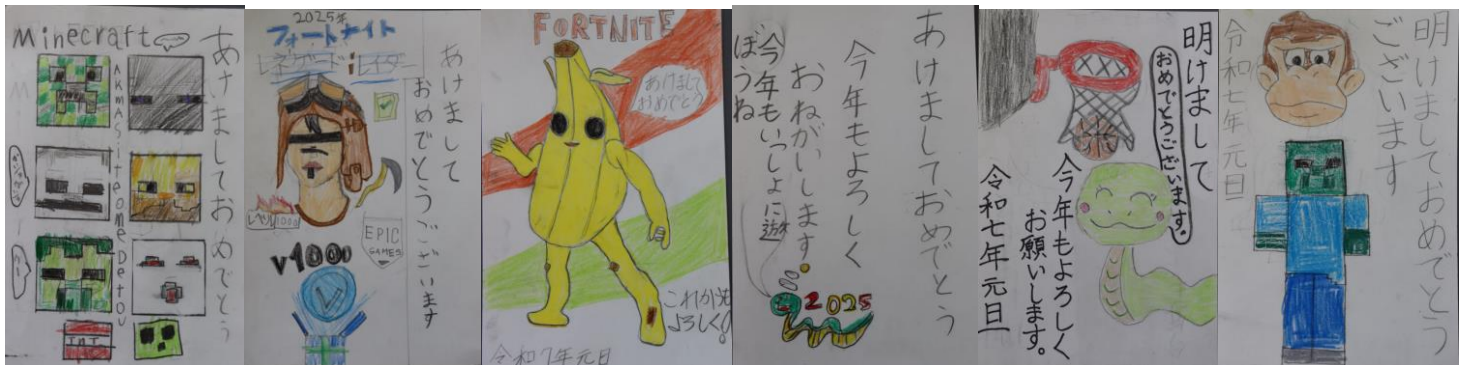 Minecraft
あけましておめでとう
AKMASiteOMeDeTOU
TNT
2025年
フォートナイト
レネゲード
レイダー
あけまして
おめでとうございます
レベル1000
EPIC
GAMES
V1000
FORTNITE
あけまして
おめでとう
これからも
よろしく!
令和7年元日
あけましておめでとう
今年もよろしく
おねがいします。
今年もいっしょに遊
ぼうね
2025
明けまして
おめでとうございます。
今年もよろしく
お願いします。
令和七年元旦
明けましておめでとう
ございます
令和七年元旦